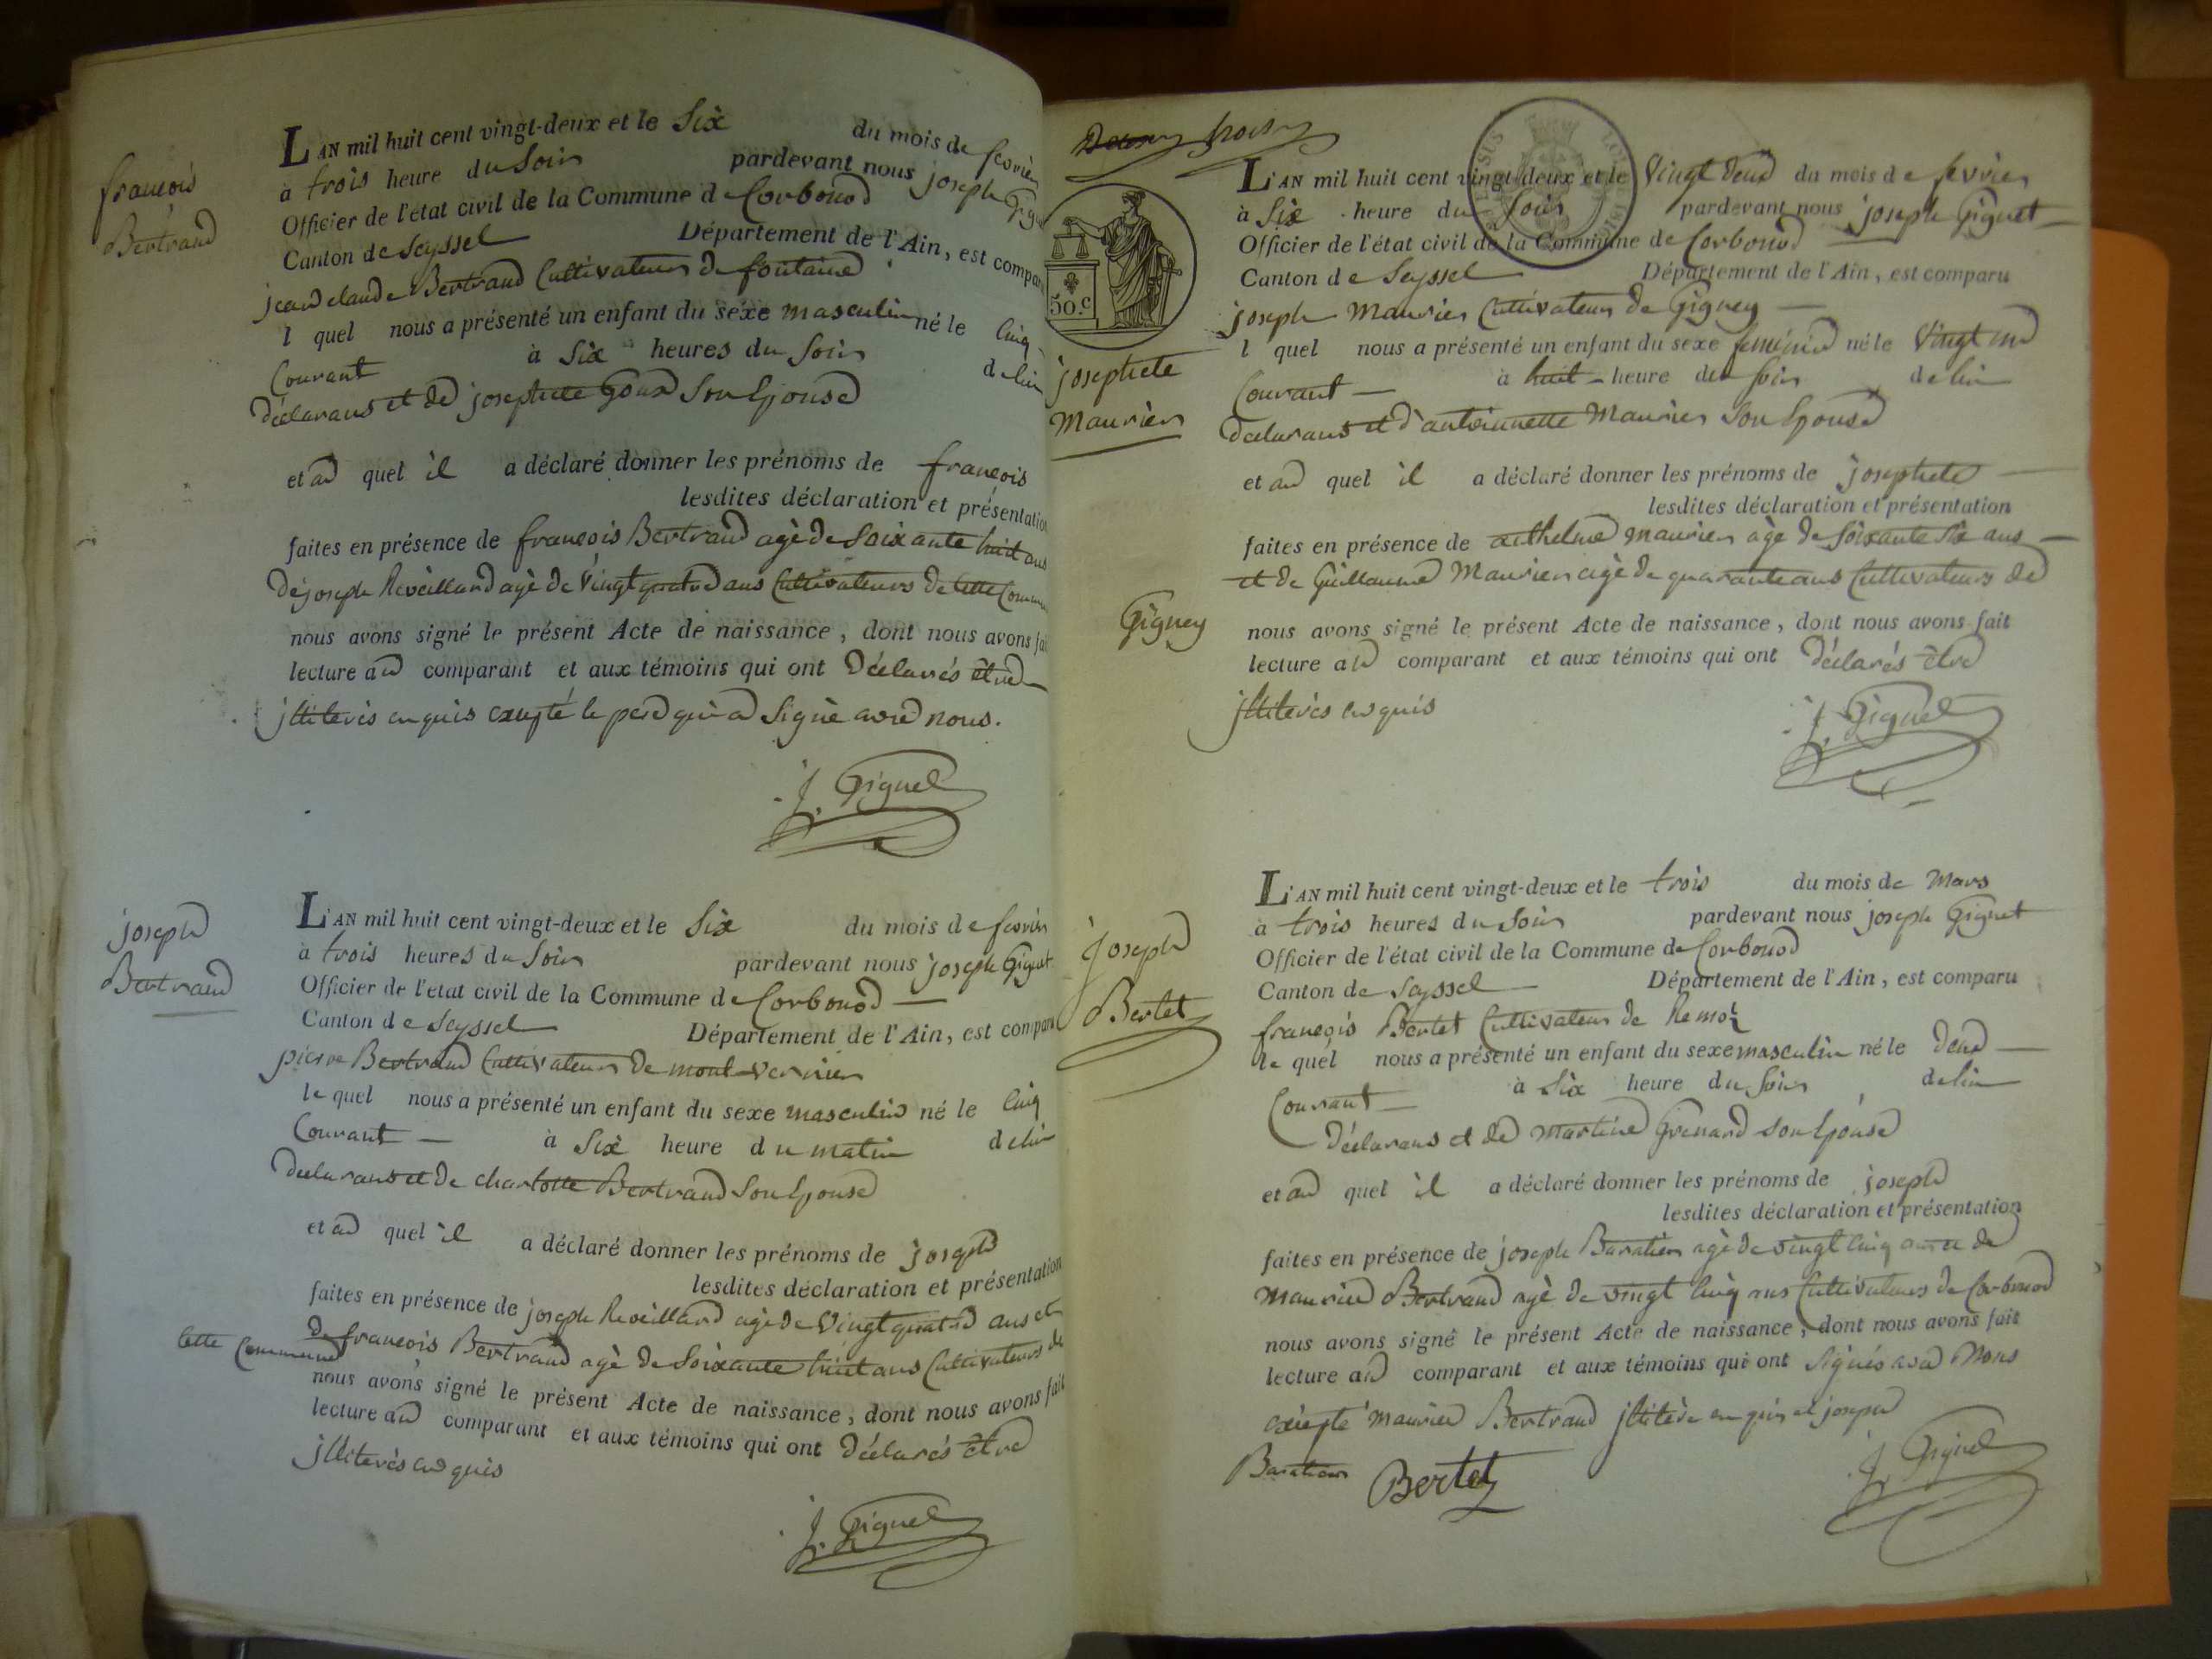 françois
Bertrand
L'AN mil huit cent vingt-deux et le Six du mois de fevrier
à trois heure du Soir pardevant nous joseph Gigu
Officier de l'état civil de la Commune de Corbonod
Canton de Seyssel Département de l'Ain, est compar
jean claude Bertrand Cultivateur de fontaine
l quel nous a présenté un enfant du sexe masculin né le Cinq
Courant à Six heures du Soir de lui
déclarans et de josephete Goux Son Epouse
et au quel il a déclaré donner les prénoms de françois
lesdites déclaration et présentation
faites en présence de françois Bertrand agè de Soixante huit ans
De joseph Reveillard agè de Vingt quatre ans Cultivateurs de Cette Commu
nous avons signé le présent Acte de naissance, dont nous avons fai
lecture au comparant et aux témoins qui ont Déclarés être
jlliterés enquis excepté le pere qui a Signè avec nous.
J. Giguet
joseph
Bertrand
L'AN mil huit cent vingt-deux et le Six du mois de fevrier
à trois heures du Soir pardevant nous joseph Giguet
Officier de l'état civil de la Commune de Corbonod
Canton de Seyssel Département de l'Ain, est comparu
pierre Bertrand Cultivateur de mont-vernier
le quel nous a présenté un enfant du sexe masculin né le Cinq
Courant à Six heure du matin de lui
Déclarans et de charlotte Bertrand Son Epouse
et au quel il a déclaré donner les prénoms de joseph
lesdites déclaration et présentation
faites en présence de joseph Reveillard agè de Vingt quatre ans et
de françois Bertrand agè de Soixante huit ans Cultivateurs de
Cette Commune
nous avons signé le présent Acte de naissance, dont nous avons fait
lecture au comparant et aux témoins qui ont Déclarés être
jlliterés enquis
J. Giguet
50.c
josephete
Maurier
L'AN mil huit cent vingt-deux et le Vingt Deux du mois de fevrier
à Six heure du Soir pardevant nous joseph Giguet
Officier de l'état civil de la Commune de Corbonod
Canton de Seyssel Département de l'Ain, est comparu
joseph Maurier Cultivateur de Gigney
l quel nous a présenté un enfant du sexe feminin né le Vingt un
Courant à huit heure du Soir de lui
Déclarans et d'antoinette Maurier Son Epouse
et au quel il a déclaré donner les prénoms de josephete
lesdites déclaration et présentation
faites en présence de anthelme Maurier agè de Soixante Six ans
et de Guillaume Maurier agè de quarante ans Cultivateurs de
Gigney
nous avons signé le présent Acte de naissance, dont nous avons fait
lecture au comparant et aux témoins qui ont Déclarés être
jlliterés enquis
J. Giguet
joseph
Bertet
L'AN mil huit cent vingt-deux et le trois du mois de Mars
à trois heures du Soir pardevant nous joseph Giguet
Officier de l'état civil de la Commune de Corbonod
Canton de Seyssel Département de l'Ain, est comparu
françois Bertet Cultivateur de Remoz
le quel nous a présenté un enfant du sexe masculin né le deux
Courant à Six heure du Soir de lui
Déclarans et de martine Grenard son Epouse
et au quel il a déclaré donner les prénoms de joseph
lesdites déclaration et présentation
faites en présence de joseph Baratier agè de vingt Cinq ans et de
Maurice Bertrand agè de vingt Cinq ans Cultivateurs de Corbonod
nous avons signé le présent Acte de naissance, dont nous avons fait
lecture au comparant et aux témoins qui ont Signés avec Nous
excepté Maurice Bertrand jlliterè enquis et joseph
Baratier Bertet
J. Giguet